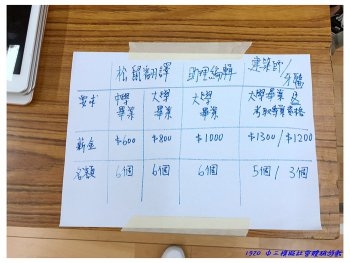 松鼠翻譯 助理編輯 建築師/牙醫
要求 中學畢業 大學畢業 大學畢業 大學畢業 及 考取專業資格
薪金 $600 $800 $1000 $1300/$1200
名額 6個 6個 6個 5個/3個
1920